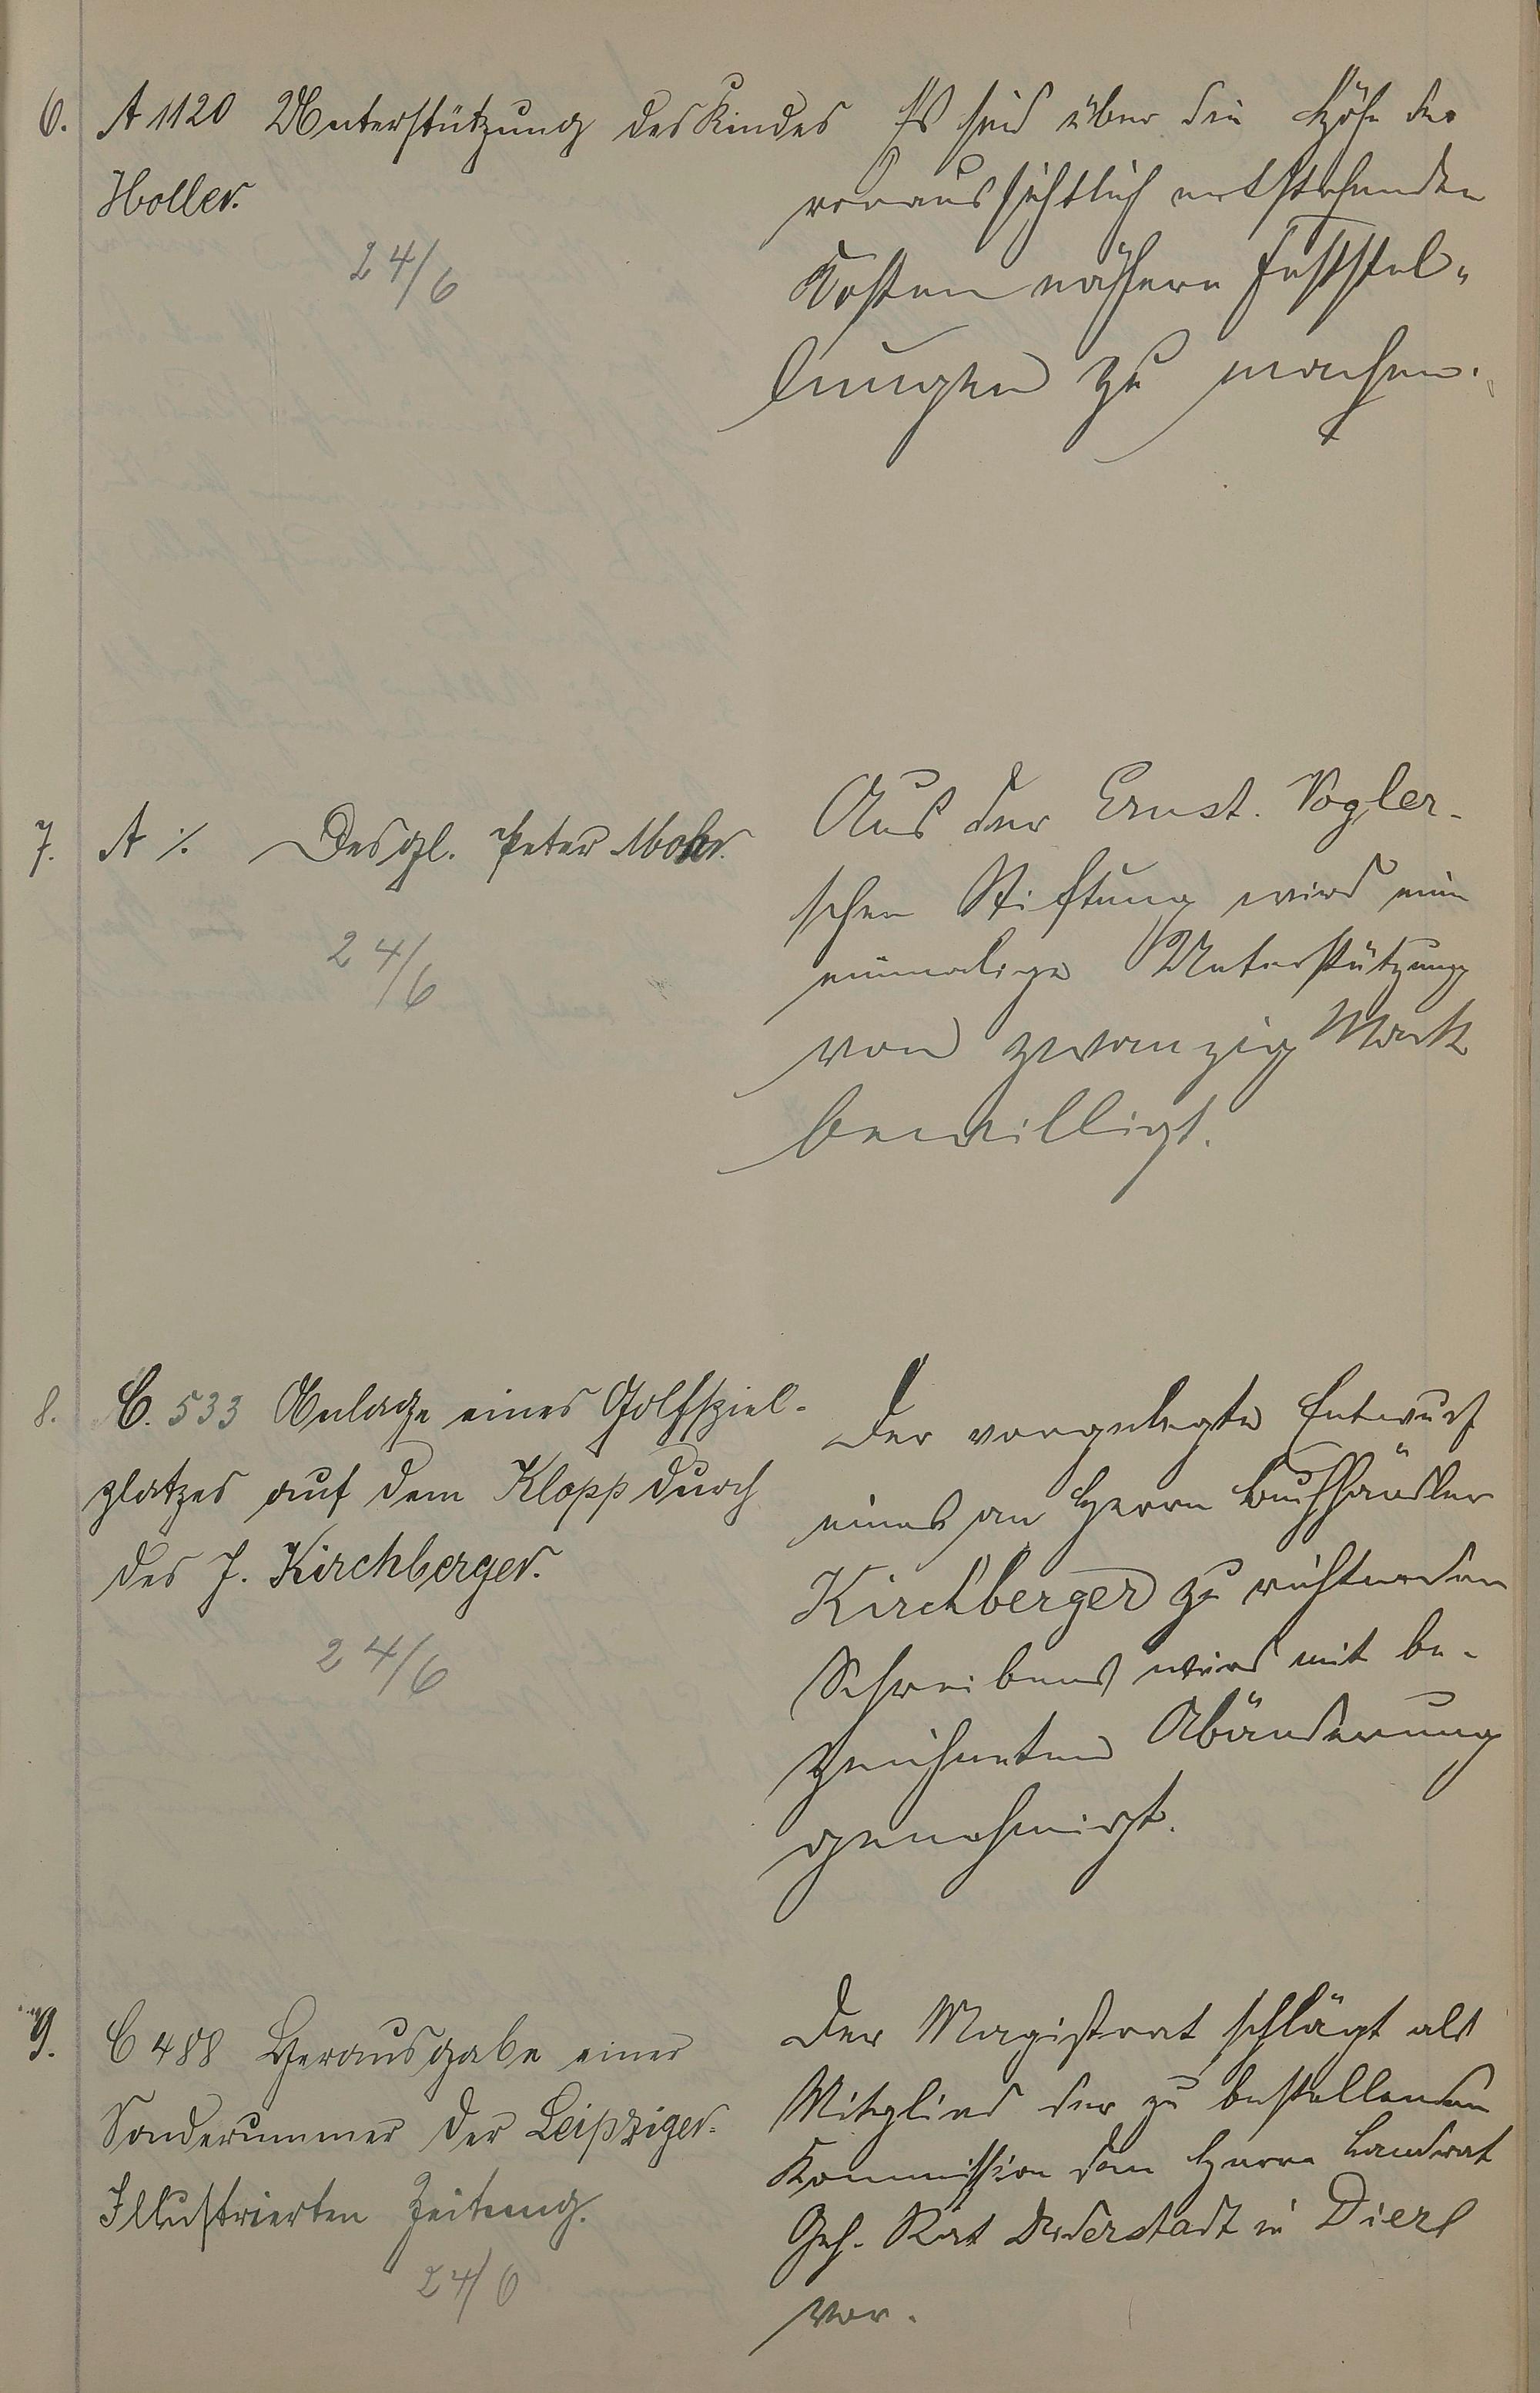 6. A 1120 Unterstützung des Kindes
Holler.
24/6
Es sind über die Höhe der
voraussichtlich entstehenden
Kosten nähere Feststel-
lungen zu machen.
7. A ./. Desgl. Peter
24/6
Aus der Ernst. Vogler-
schen Stiftung wird eine
einmalige Unterstützung
von zwanzig Mark
bewilligt.
8. C. 533 Anlage eines Golfspiel-
platzes auf dem Klopp durch
des J. Kirchberger.
24/6
Der vorgelegte Entwurf
eines an Herrn Buchhändler
Kirchberger zu richtenden
Schreibens wird mit be-
zeichneten Abänderung
genehmigt.
9. C 488 Herausgabe einer
Sondernummer der Leipziger-
Illustrierten Zeitung.
24/6
Der Magistrat schlägt als
Mitglied der zu bestellenden
Kommission den Herrn Landrat
Geh. Rat in
vor.